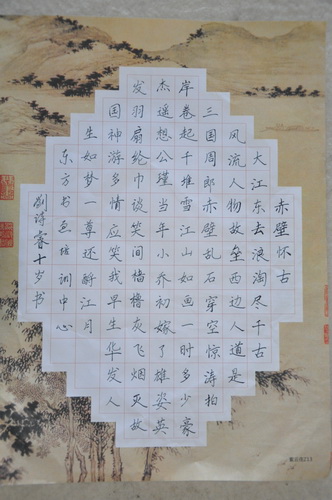 赤壁怀古
大江东去浪淘尽千古
风流人物故垒西边人道是
三国周郎赤壁乱石穿空惊涛拍
岸卷起千堆雪江山如画一时多少豪
杰遥想公瑾当年小乔初嫁了雄姿英
发羽扇纶巾谈笑间樯橹灰飞烟灭故
国神游多情应笑我早生华发人
生如梦一尊还酹江月
东方书画培训中心
刘诗睿十岁书